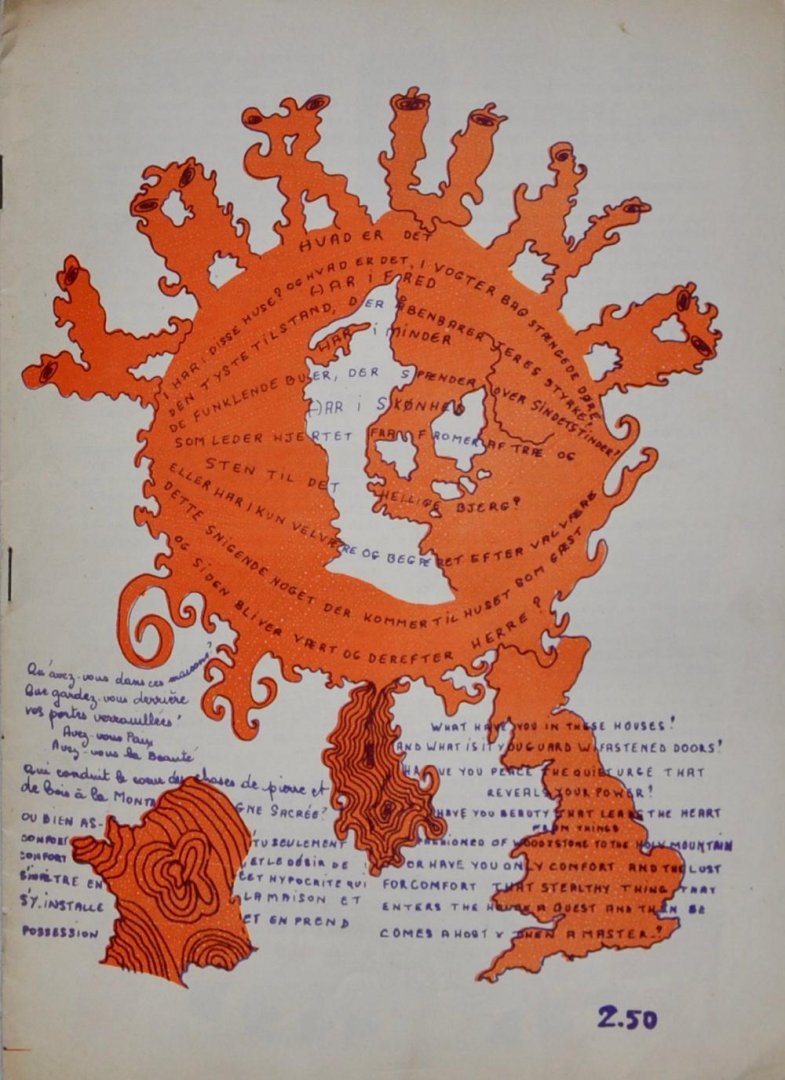 HVAD ER DET
I HAR I DISSE HUSE? OG HVAD ER DET, I VOGTER BAG STÆNGEDE DØRE
HAR I FRED
DEN TYSTE TILSTAND, DER ÅBENBARER JERES STYRKE?
HAR I MINDER
DE FUNKLENDE BUER, DER SPÆNDER OVER SINDETSTINDER?
HAR I SKØNHED
SOM LEDER HJERTET FRA FROMER AF TRÆ OG
STEN TIL DET HELLIGE BJERG?
ELLER HAR I KUN VELVÆRE OG BEGÆRET EFTER VALVÆRE
DETTE SNIGENDE NOGET DER KOMMER TIL HUSET SOM GÆST
OG SIDEN BLIVER VÆRT OG DEREFTER HERRE?
Qu'avez-vous dans ces maisons?
Que gardez-vous derrière
vos portes verrouillées?
Avez-vous Paix
Avez-vous la Beauté
qui conduit le coeur des choses de pierre et
de bois à la MONTAGNE SACRÉE?
OU BIEN AS-TU SEULEMENT
CONFORT ET LE DÉSIR DE
CONFORT CET HYPOCRITE QUI
EN LA MAISON ET
S'Y INSTALLE ET EN PREND
POSSESSION
WHAT HAVE YOU IN THESE HOUSES?
AND WHAT IS IT YOU GUARD W FASTENED DOORS?
HAVE YOU PEACE THE QUIET URGE THAT
REVEALS YOUR POWER?
HAVE YOU BEAUTY THAT LEADS THE HEART
FROM THINGS
FASHIONED OF WOOD STONE TO THE HOLY MOUNTAIN
OR HAVE YOU ONLY COMFORT AND THE LUST
FOR COMFORT THAT STEALTHY THING THAT
ENTERS THE HOUSE A GUEST AND THEN BE
COMES A HOST & THEN A MASTER.?
2.50